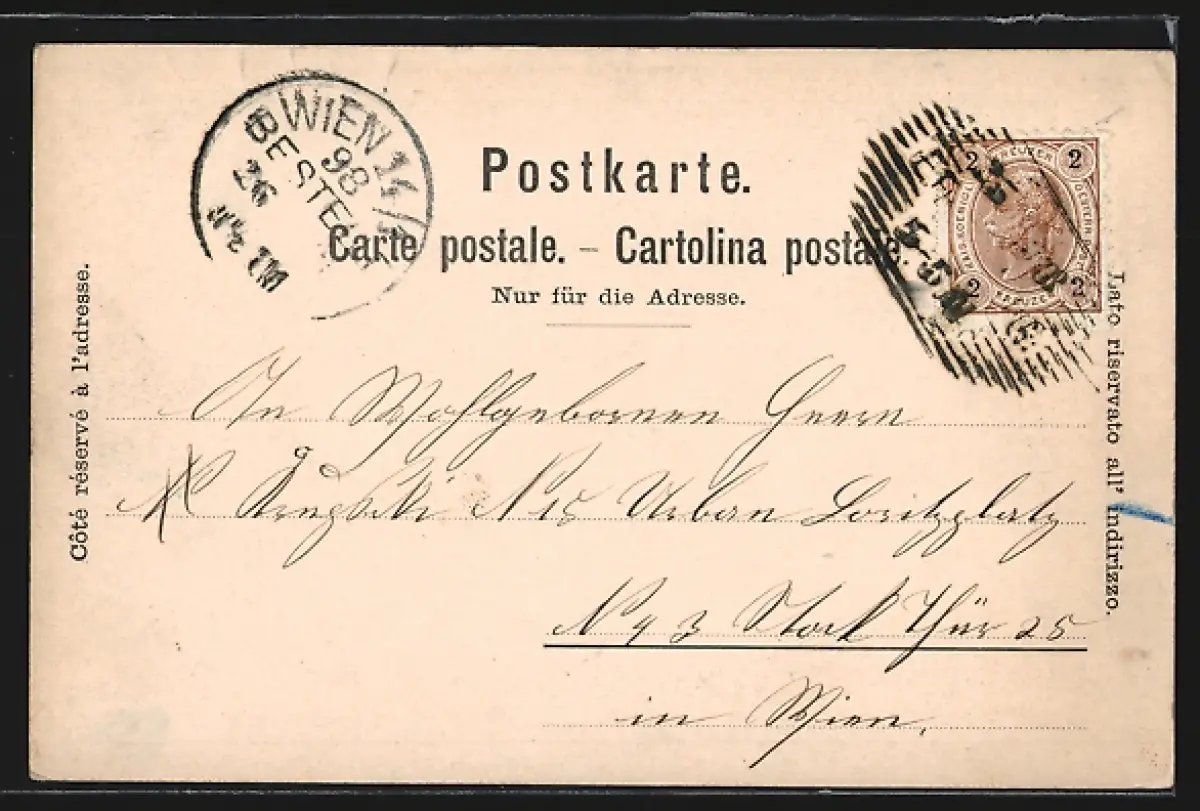 WIEN 14/1
98
BESTELLT
26
Postkarte.
Carte postale. – Cartolina postale.
Nur für die Adresse.
Côté réservé à l'adresse.
Lato riservato all' indirizzo.
2 KREUZER 2
2 KREUZER 2
An Wohlgebornen Herrn
N 15 Urban Loritzplatz
N 4 3 Stock Thür 25
in Wien,